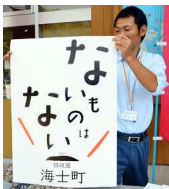 ないものは
ない
隠岐國
海士町